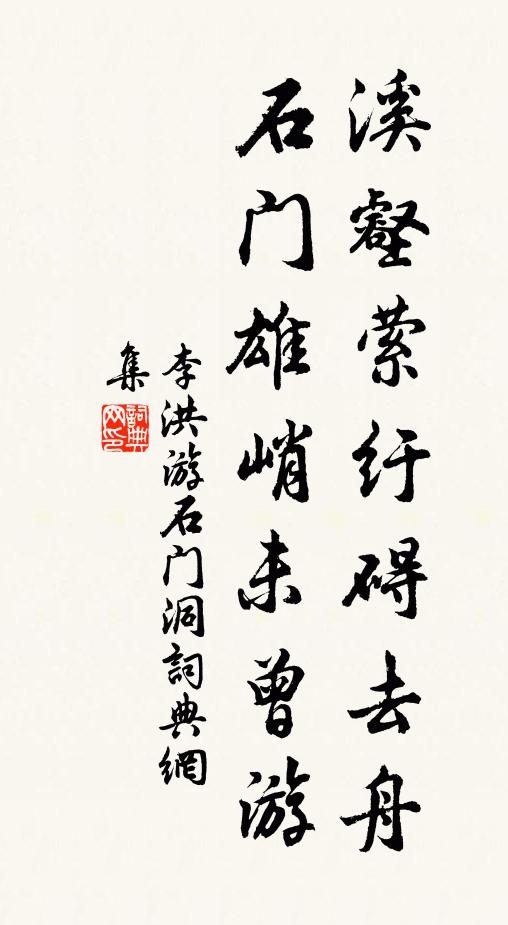 溪壑萦纡碍去舟
石门雄峭未曾游
李洪游石门洞詞典網
集
詞典网印